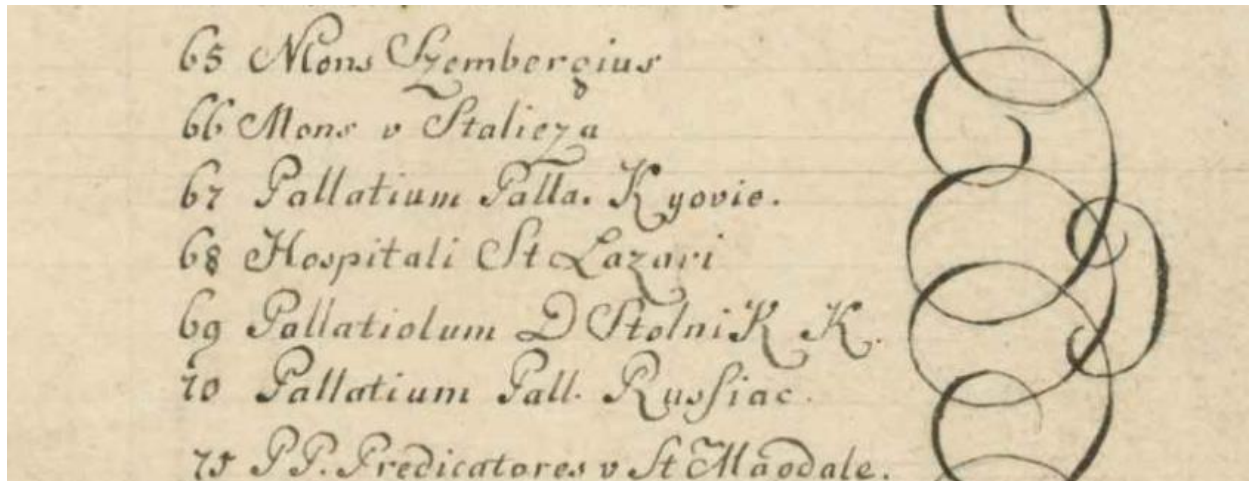 65 Mons Szembergius
66 Mons v Stalieza
67 Pallatium Palla. Kyovie.
68 Hospitali St Lazari
69 Pallatiolum D Stolnik K.
70 Pallatium Pall. Russiac.
75 PP. Predicatores v St Magdale.